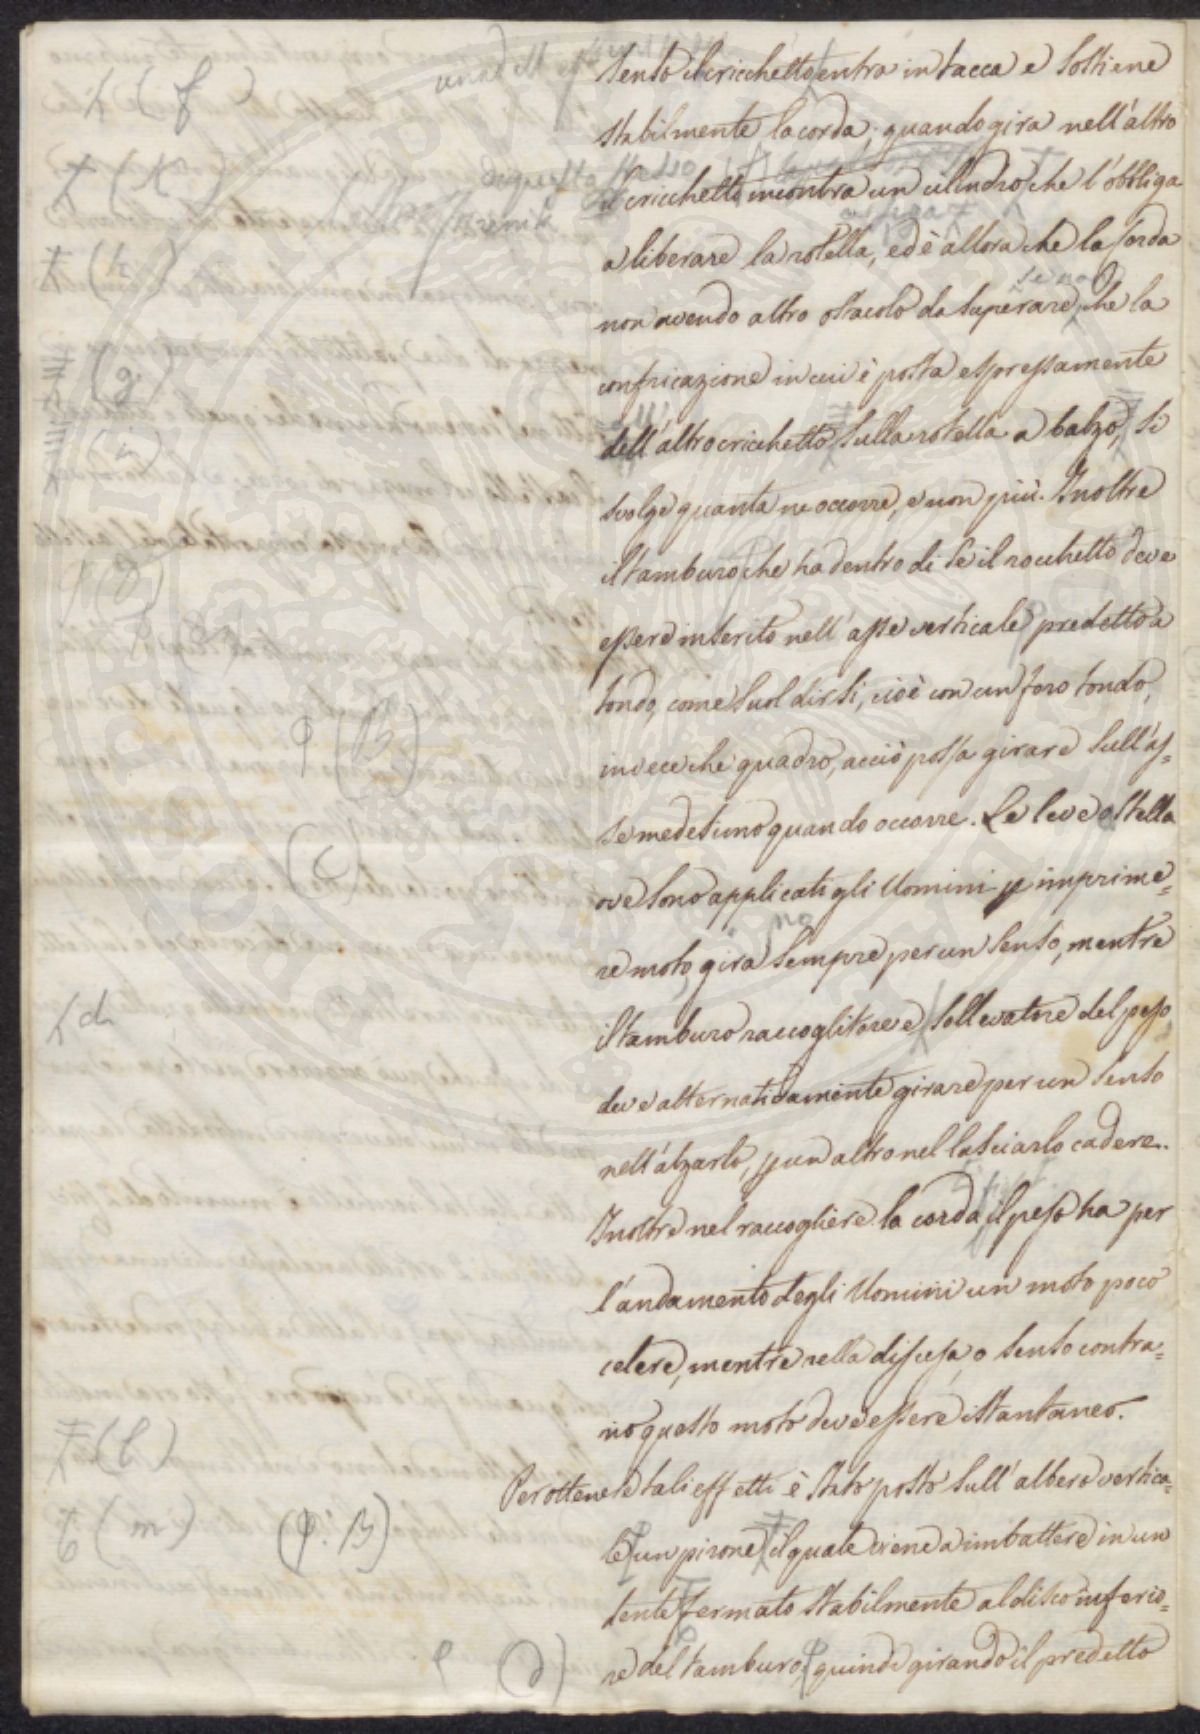 senso il cricchetto entra in tacca e sostiene
stabilmente la corda; quando gira nell'altro
di questo stesso
il cricchetto incontra un cilindro che l'obbliga
a liberare la rotella, ed è allora che la corda
se non
non avendo altro ostacolo da superare, che la
confricazione in cui è posta espressamente
dell'altro cricchetto sulla rotella a balzo, si
svolge quanta ne occorre, e non più. Inoltre
il tamburo che ha dentro di se il rocchetto deve
essere inserito nell'asse verticale predetto a
tondo, come suol dirsi, cioè con un foro tondo,
invece che quadro, acciò possa girare sull'as=
se medesimo quando occorre. Le leve o stella
ove sono applicati gli Uomini p imprime=
no
re moto, gira sempre per un senso, mentre
il tamburo raccoglitore e sollevatore del peso
deve alternativamente girare per un senso
nell'alzarlo, p un altro nel lasciarlo cadere.
Inoltre nel raccogliere la corda, il peso ha per
l'andamento degli Uomini un moto poco
celere, mentre nella discesa, o senso contra=
rio questo moto deve essere istantaneo.
Per ottenere tali effetti è stato posto sull'albero vertica=
le un pirone il quale viene a imbattere in un
dente fermato stabilmente al disco inferio=
re del tamburo, quindi girando il predetto
(f)
(K)
(h)
(g)
(i)
(B)
(C)
d
(l)
(m)
(φ. B)